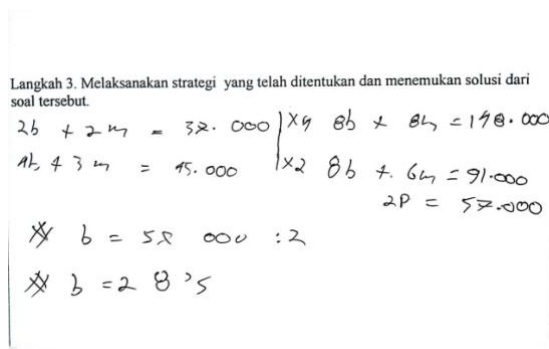 Langkah 3. Melaksanakan strategi yang telah ditentukan dan menemukan solusi dari
soal tersebut.
2b + 2m = 37.000 | x4 8b + 8m = 148.000
4b + 3m = 45.000 | x2 8b + 6m = 91.000
2P = 57.000
b = 57 000 : 2
b = 28,5